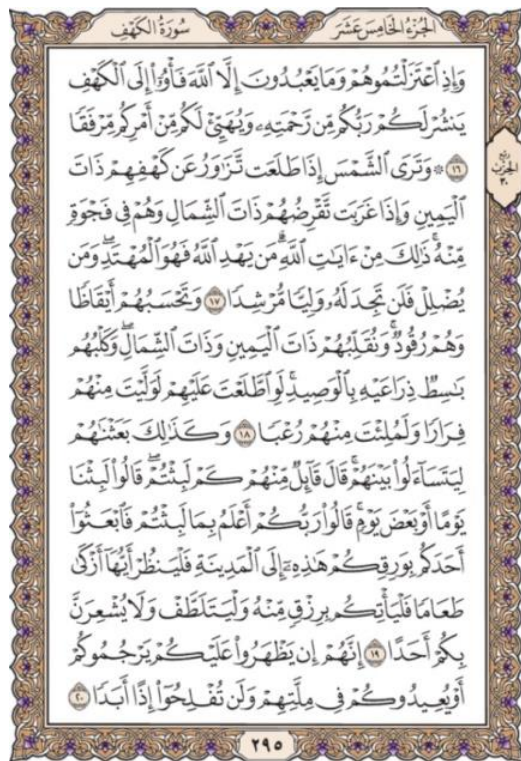 الجزء الخامس عشر
سورة الكهف
وَإِذِ ٱعۡتَزَلۡتُمُوهُمۡ وَمَا يَعۡبُدُونَ إِلَّا ٱللَّهَ فَأۡوُۥٓاْ إِلَى ٱلۡكَهۡفِ
يَنشُرۡ لَكُمۡ رَبُّكُم مِّن رَّحۡمَتِهِۦ وَيُهَيِّئۡ لَكُم مِّنۡ أَمۡرِكُم مِّرۡفَقٗا
١٦ ۞ وَتَرَى ٱلشَّمۡسَ إِذَا طَلَعَت تَّزَٰوَرُ عَن كَهۡفِهِمۡ ذَاتَ
ربع الحزب ٣٠
ٱلۡيَمِينِ وَإِذَا غَرَبَت تَّقۡرِضُهُمۡ ذَاتَ ٱلشِّمَالِ وَهُمۡ فِي فَجۡوَةٖ
مِّنۡهُۚ ذَٰلِكَ مِنۡ ءَايَٰتِ ٱللَّهِۗ مَن يَهۡدِ ٱللَّهُ فَهُوَ ٱلۡمُهۡتَدِۖ وَمَن
يُضۡلِلۡ فَلَن تَجِدَ لَهُۥ وَلِيّٗا مُّرۡشِدٗا ١٧ وَتَحۡسَبُهُمۡ أَيۡقَاظٗا
وَهُمۡ رُقُودٞۚ وَنُقَلِّبُهُمۡ ذَاتَ ٱلۡيَمِينِ وَذَاتَ ٱلشِّمَالِۖ وَكَلۡبُهُم
بَٰسِطٞ ذِرَاعَيۡهِ بِٱلۡوَصِيدِۚ لَوِ ٱطَّلَعۡتَ عَلَيۡهِمۡ لَوَلَّيۡتَ مِنۡهُمۡ
فِرَارٗا وَلَمُلِئۡتَ مِنۡهُمۡ رُعۡبٗا ١٨ وَكَذَٰلِكَ بَعَثۡنَٰهُمۡ
لِيَتَسَآءَلُواْ بَيۡنَهُمۡۚ قَالَ قَآئِلٞ مِّنۡهُمۡ كَمۡ لَبِثۡتُمۡۖ قَالُواْ لَبِثۡنَا
يَوۡمًا أَوۡ بَعۡضَ يَوۡمٖۚ قَالُواْ رَبُّكُمۡ أَعۡلَمُ بِمَا لَبِثۡتُمۡ فَٱبۡعَثُوٓاْ
أَحَدَكُم بِوَرِقِكُمۡ هَٰذِهِۦٓ إِلَى ٱلۡمَدِينَةِ فَلۡيَنظُرۡ أَيُّهَآ أَزۡكَىٰ
طَعَامٗا فَلۡيَأۡتِكُم بِرِزۡقٖ مِّنۡهُ وَلۡيَتَلَطَّفۡ وَلَا يُشۡعِرَنَّ
بِكُمۡ أَحَدًا ١٩ إِنَّهُمۡ إِن يَظۡهَرُواْ عَلَيۡكُمۡ يَرۡجُمُوكُمۡ
أَوۡ يُعِيدُوكُمۡ فِي مِلَّتِهِمۡ وَلَن تُفۡلِحُوٓاْ إِذًا أَبَدٗا ٢٠
٢٩٥